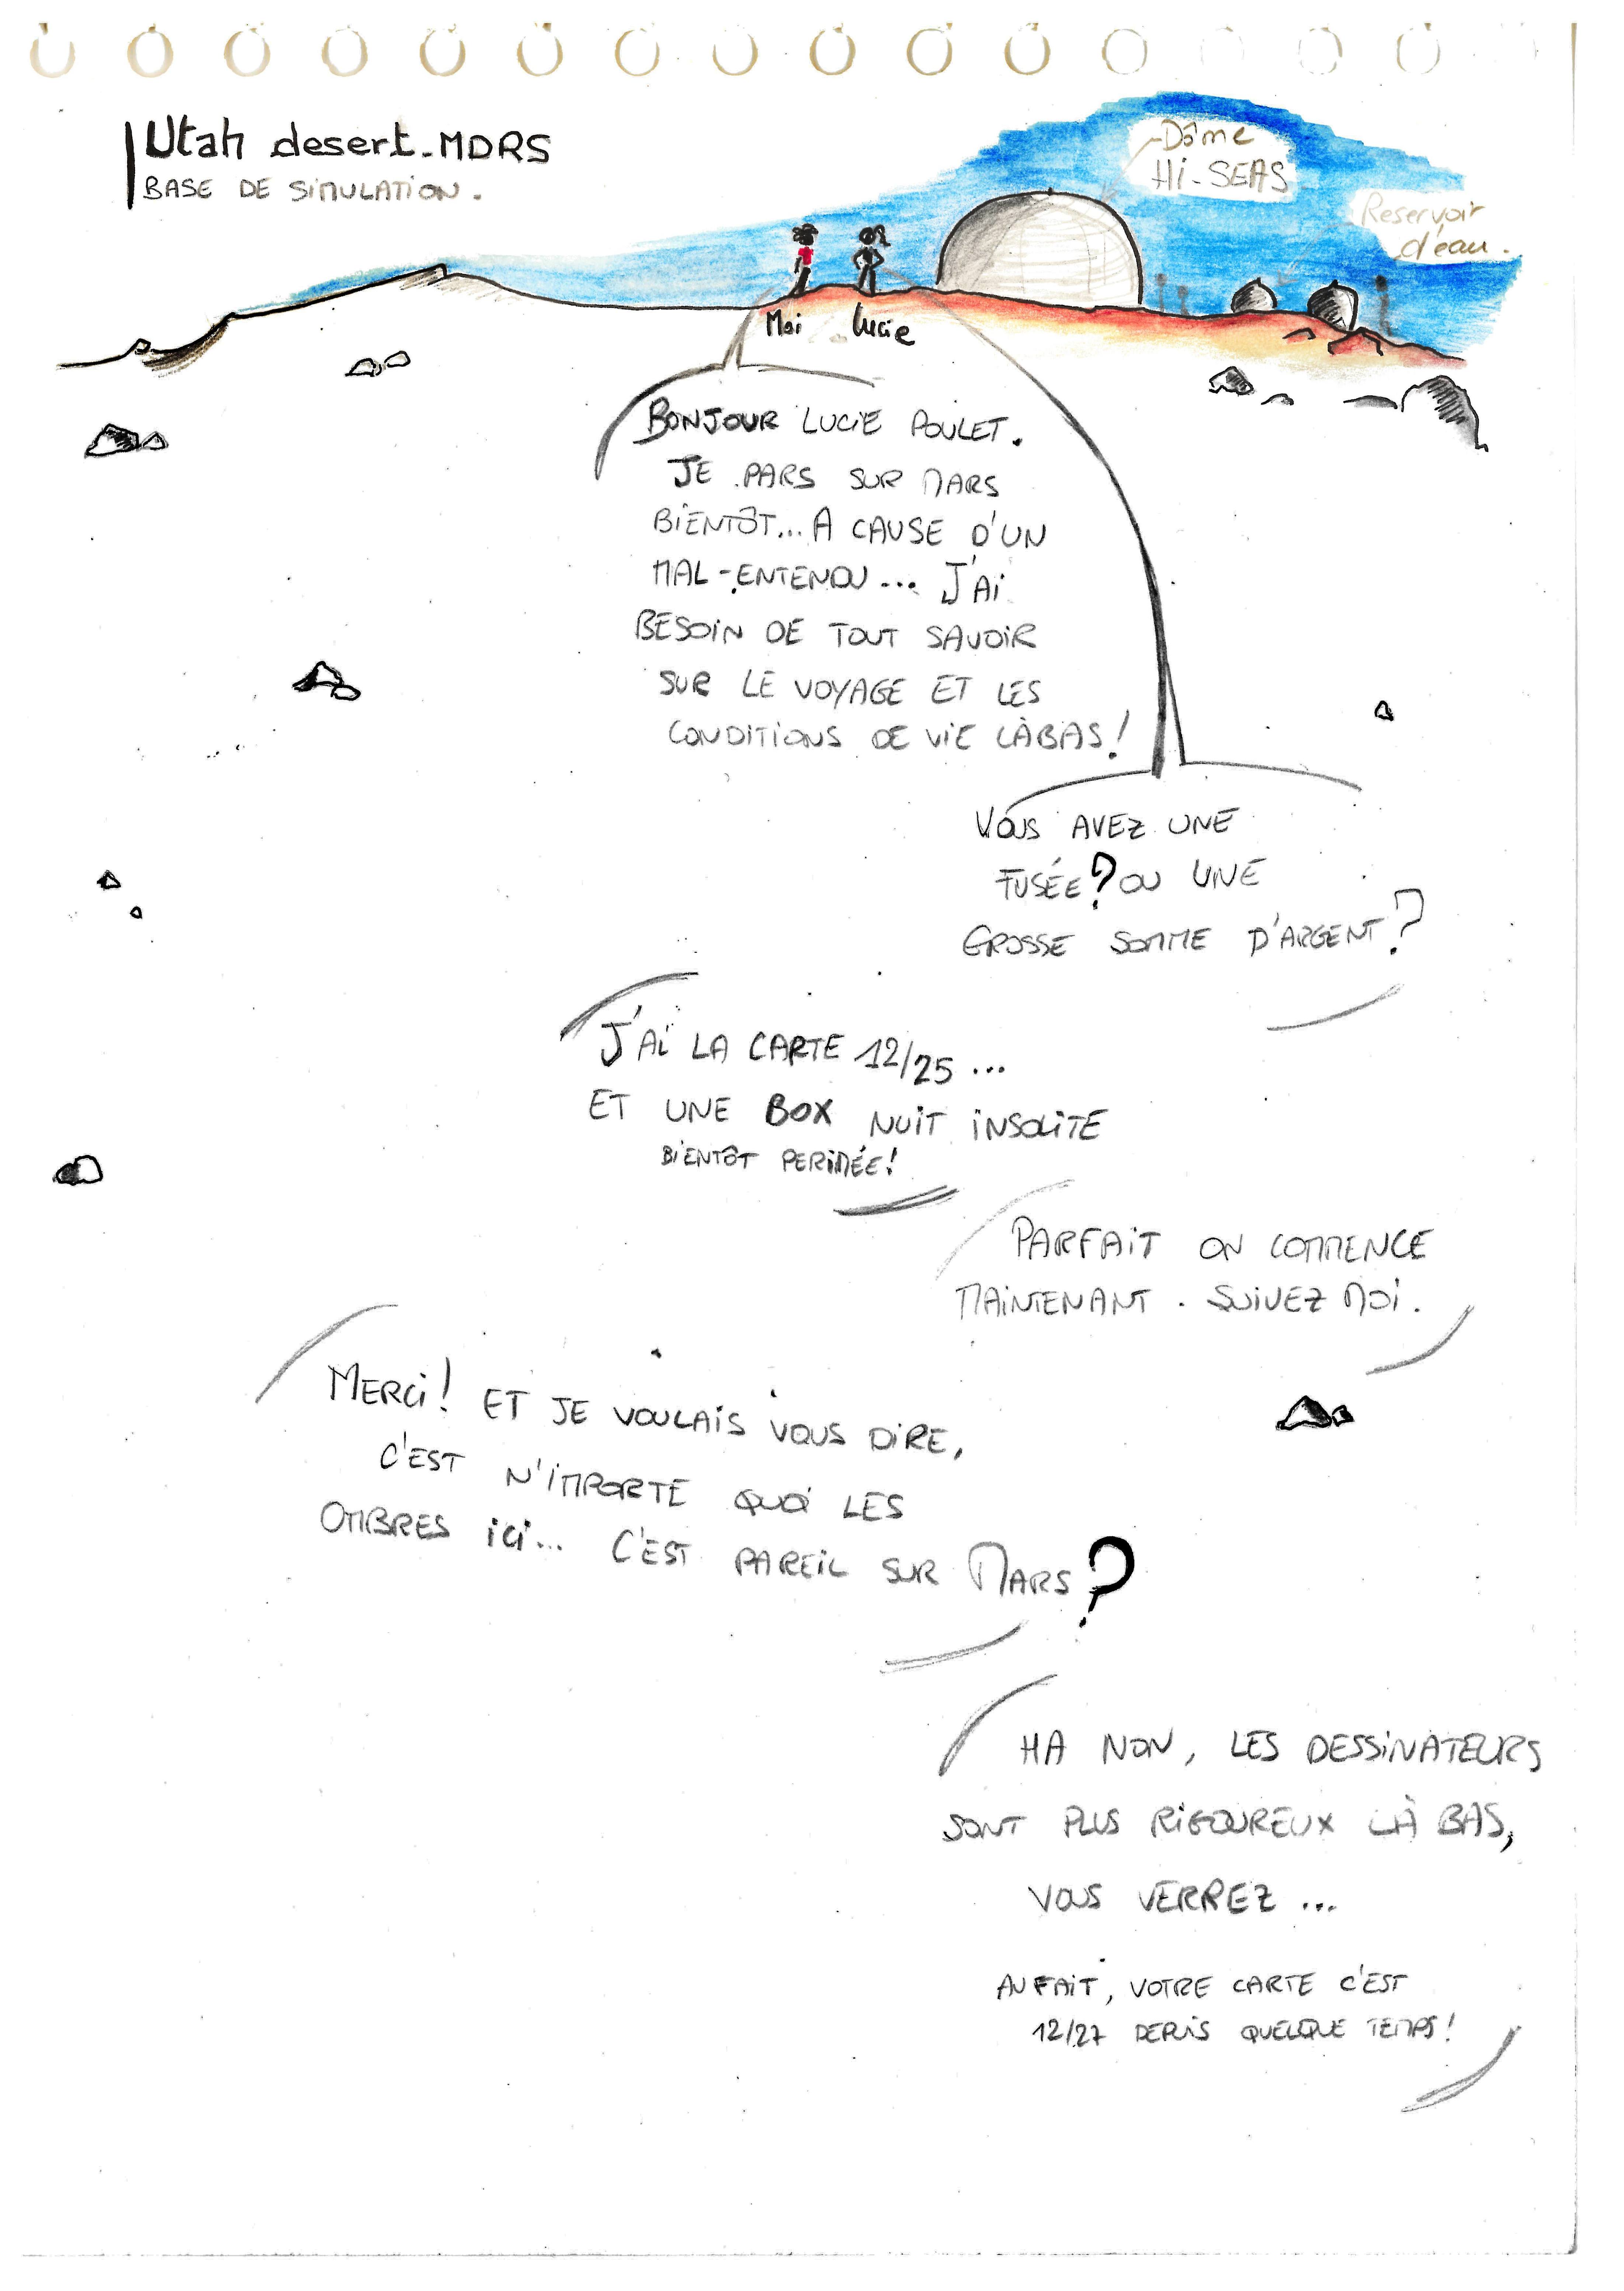 Utah desert-MDRS
BASE DE SIMULATION.
Dôme
Hi-SEAS
Reservoir
d'eau.
Moi Lucie
BONJOUR LUCIE POULET.
JE PARS SUR MARS
BIENTÔT... A CAUSE D'UN
MAL-ENTENDU... J'AI
BESOIN DE TOUT SAVOIR
SUR LE VOYAGE ET LES
CONDITIONS DE VIE LÀBAS!
VOUS AVEZ UNE
FUSÉE? OU UNE
GROSSE SOMME D'ARGENT?
J'AI LA CARTE 12/25...
ET UNE BOX NUIT INSOLITE
BIENTÔT PERIMÉE!
PARFAIT ON COMMENCE
MAINTENANT. SUIVEZ MOI.
MERCI! ET JE VOULAIS VOUS DIRE,
C'EST N'IMPORTE QUOI LES
OMBRES ICI... C'EST PAREIL SUR MARS?
HA NON, LES DESSINATEURS
SONT PLUS RIGOUREUX LÀ BAS,
VOUS VERREZ...
AU FAIT, VOTRE CARTE C'EST
12/27 DEPUIS QUELQUE TEMPS!